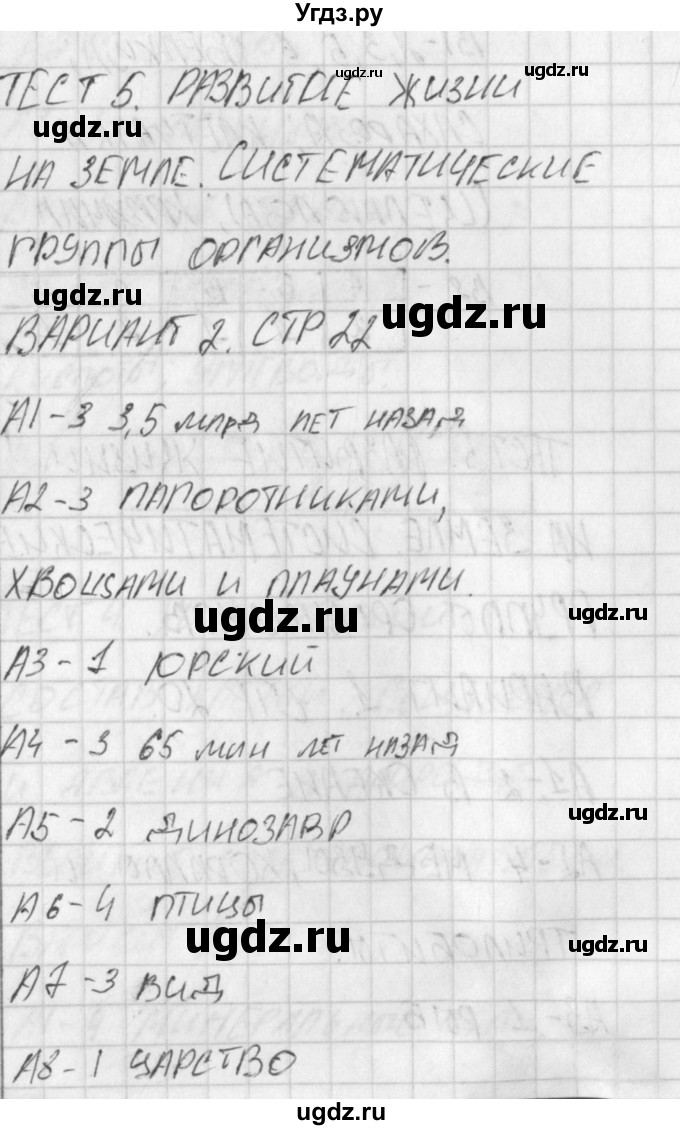 Угдз.ру
ugdz.ru ugdz.ru
ТЕСТ 5. РАЗВИТИЕ ЖИЗНИ
ugdz.ru
НА ЗЕМЛЕ. СИСТЕМАТИЧЕСКИЕ
ГРУППЫ ОРГАНИЗМОВ.
ugdz.ru
ugdz.ru
ВАРИАНТ 2. СТР 22
А1-3 3,5 млрд ЛЕТ НАЗАД
А2-3 ПАПОРОТНИКАМИ,
ХВОЩАМИ И ПЛАУНАМИ.
ugdz.ru ugdz.ru
А3-1 ЮРСКИЙ
А4-3 65 млн ЛЕТ НАЗАД
ugdz.ru
А5-2 ДИНОЗАВР
А6-4 ПТИЦЫ
ugdz.ru ugdz.ru
А7-3 ВИД
А8-1 ЦАРСТВО
ugdz.ru